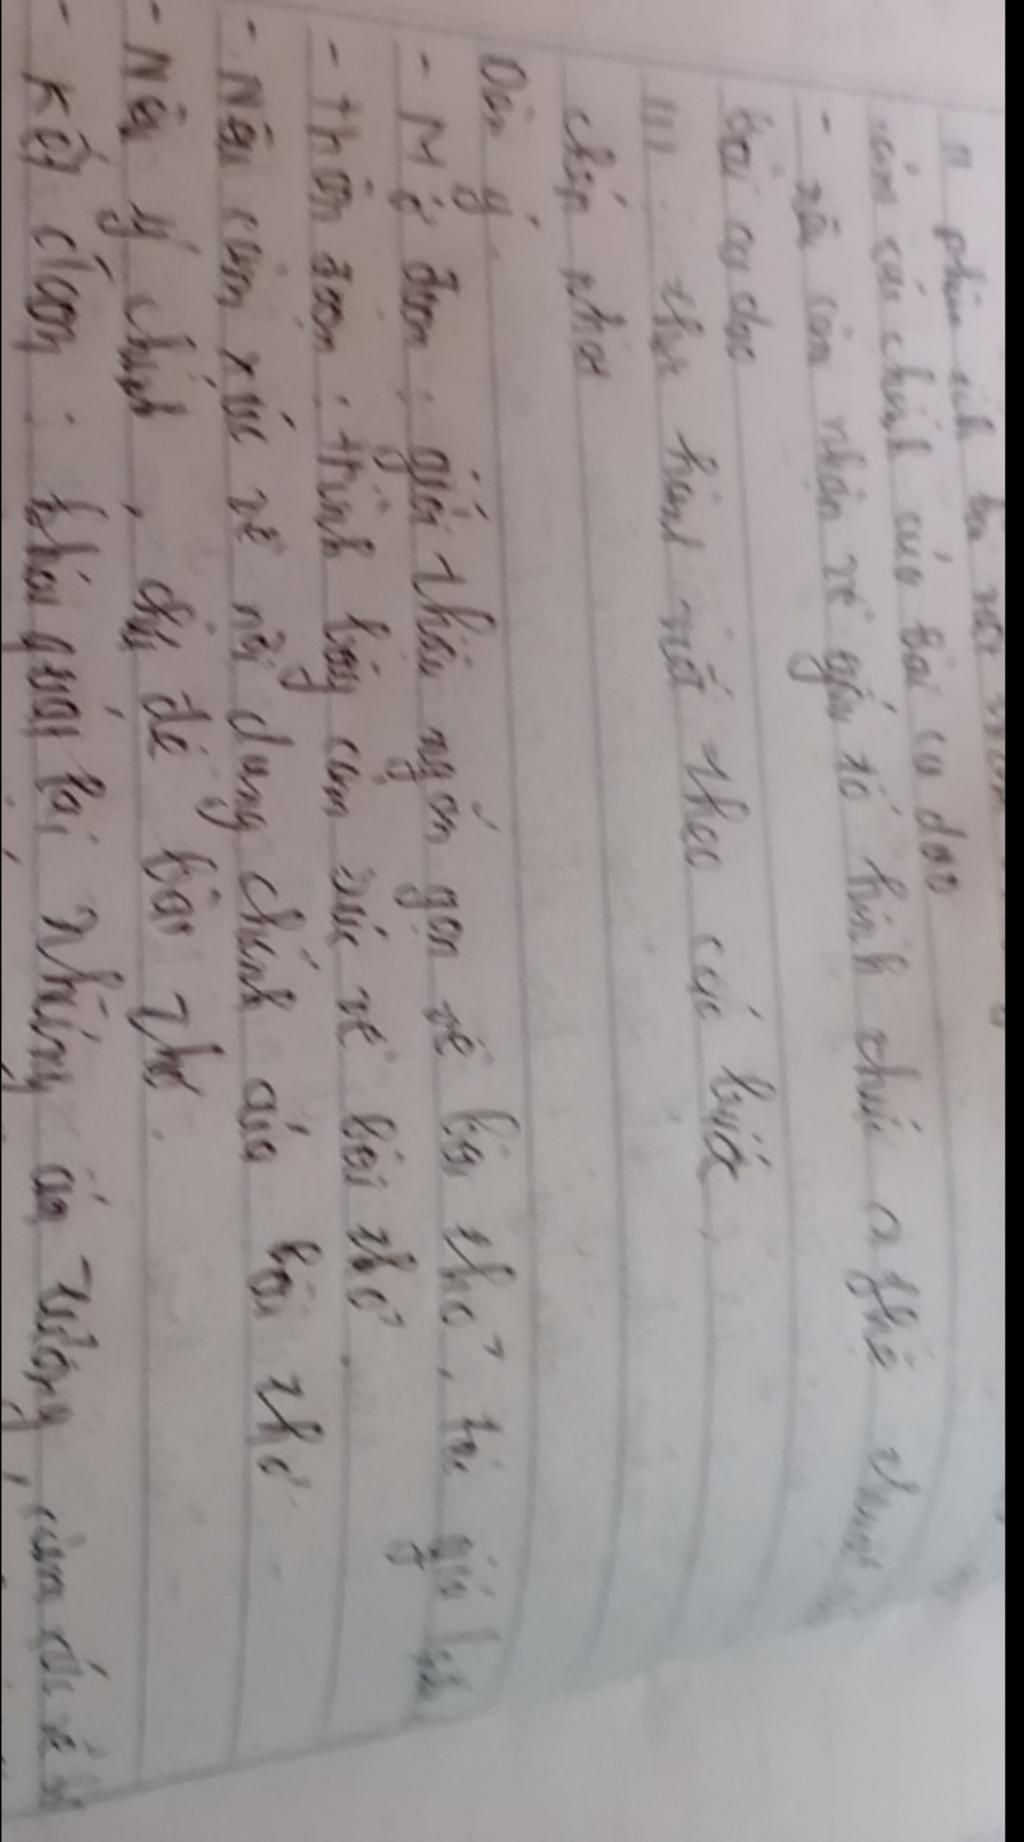 phân tích
cảm xúc chính của bài ca dao
- nêu cảm nhận về yếu tố hình thức nghệ thuật
bài ca dao
III. thực hành viết theo các bước
Dàn ý.
- Mở đoạn: giới thiệu ngắn gọn về bài thơ, tác giả
- thân đoạn: trình bày cảm xúc về bài thơ.
- Nêu cảm xúc về nội dung chính của bài thơ
- Nêu ý chính, chủ đề bài thơ.
- Kết đoạn: khái quát lại những ấn tượng, cảm xúc về